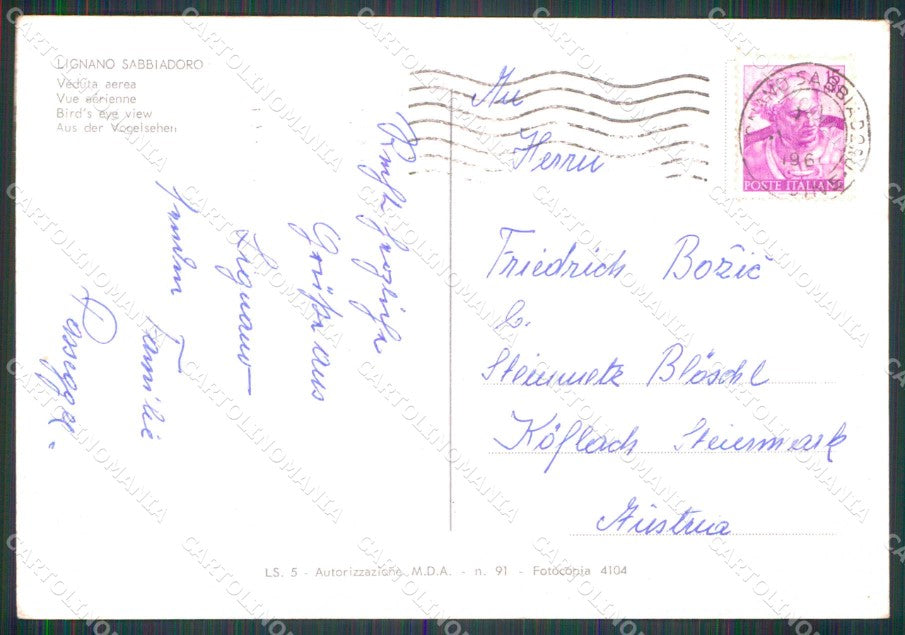 LIGNANO SABBIADORO
Veduta aerea
Vue aérienne
Bird's eye view
Aus der Vogelsehen
Grüße aus
Lignano
Familie
An
Herrn
Friedrich Božič
b.
Steinmetz Blöschl
Köflach Steiermark
Austria
POSTE ITALIANE
LIGNANO SABBIADORO
LS. 5 - Autorizzazione M.D.A. - n. 91 - Fotocopia 4104
CARTOLINOMANIA